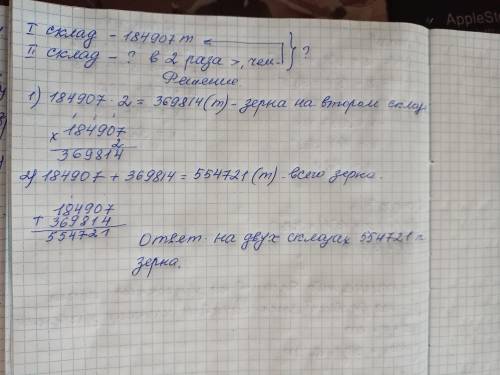 AppleSto
I склад - 184907 т
II склад - ? в 2 раза >, чем } ?
Решение.
1) 184907 · 2 = 369814 (т) - зерна на втором склад
× 184907
2
369814
2) 184907 + 369814 = 554721 (т) - всего зерна.
+ 184907
369814
554721
Ответ: на двух складах 554721 т
зерна.